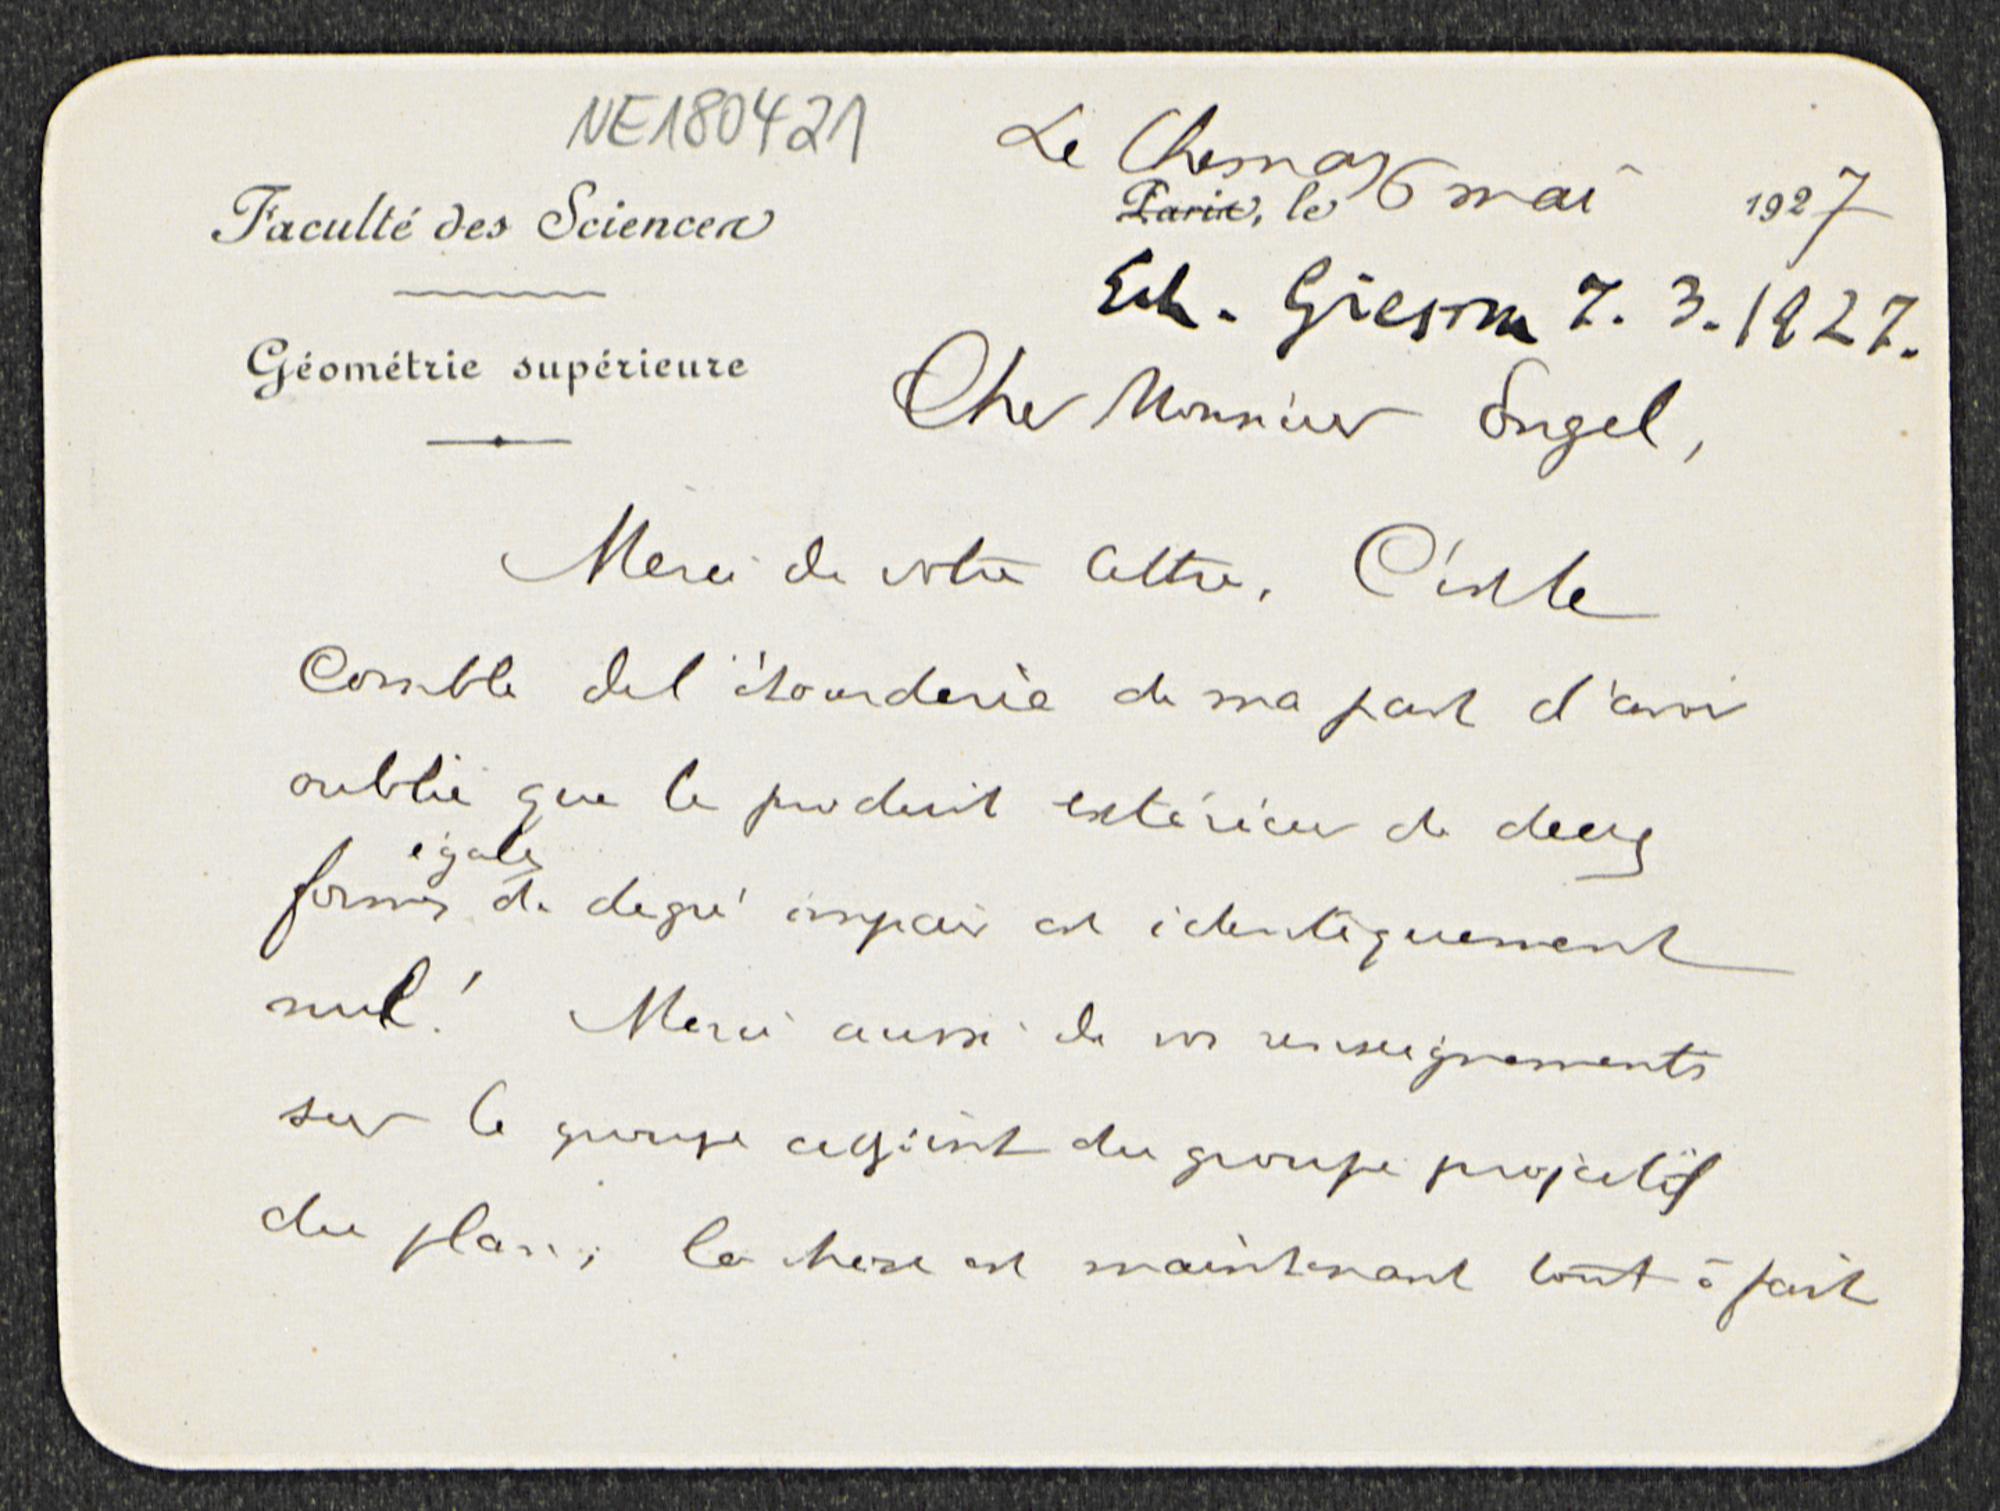 NE180421
Le Chesnay 6 mai 1927
Faculté des Sciences
Paris, le
Erh. Giessen 7. 3. 1927.
Géométrie supérieure
Cher Monsieur Engel,
Merci de votre lettre. C'est le
comble de l'étourderie de ma part d'avoir
oublié que le produit extérieur de deux
égales
formes de degré impair est identiquement
nul! Merci aussi de vos renseignements
sur le groupe adjoint du groupe projectif
du plan; la chose est maintenant tout à fait